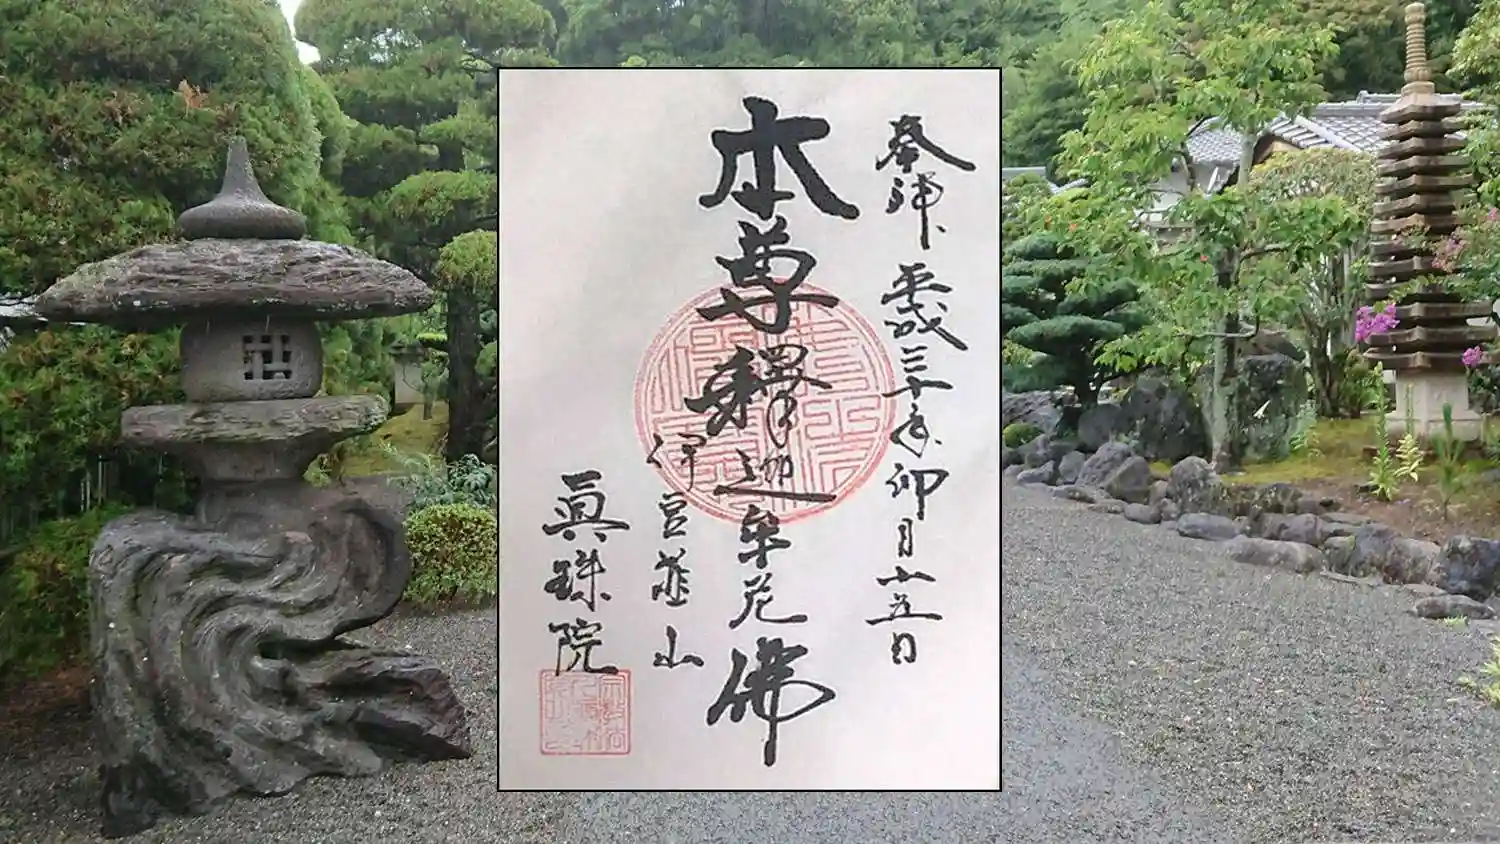 奉拝、平成三十年卯月十五日
本尊釋迦牟尼佛
伊豆韮山
眞珠院